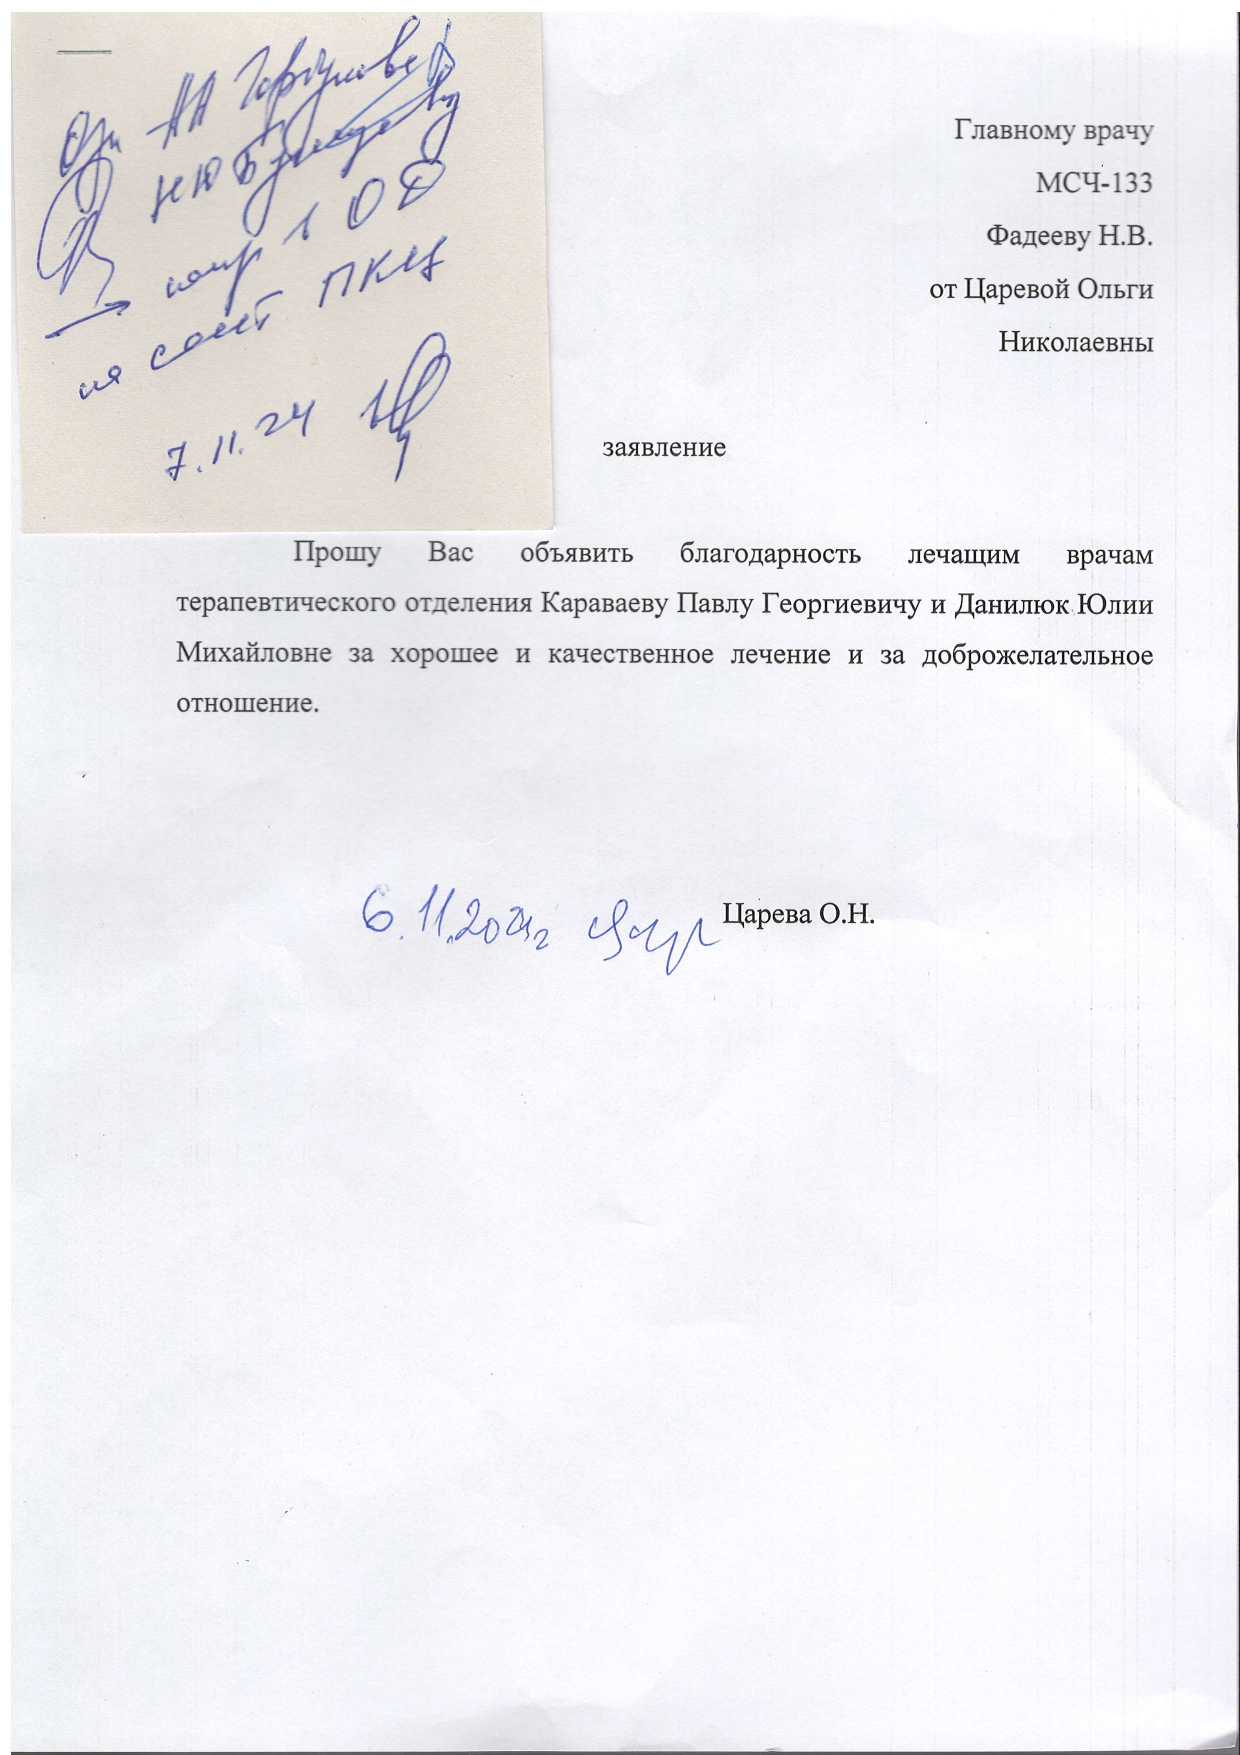 АА
НЮ
в ОД
на сайт ПКЦ
7.11.24
Главному врачу
МСЧ-133
Фадееву Н.В.
от Царевой Ольги
Николаевны
заявление
Прошу Вас объявить благодарность лечащим врачам
терапевтического отделения Караваеву Павлу Георгиевичу и Данилюк Юлии
Михайловне за хорошее и качественное лечение и за доброжелательное
отношение.
6.11.2024г Царева О.Н.